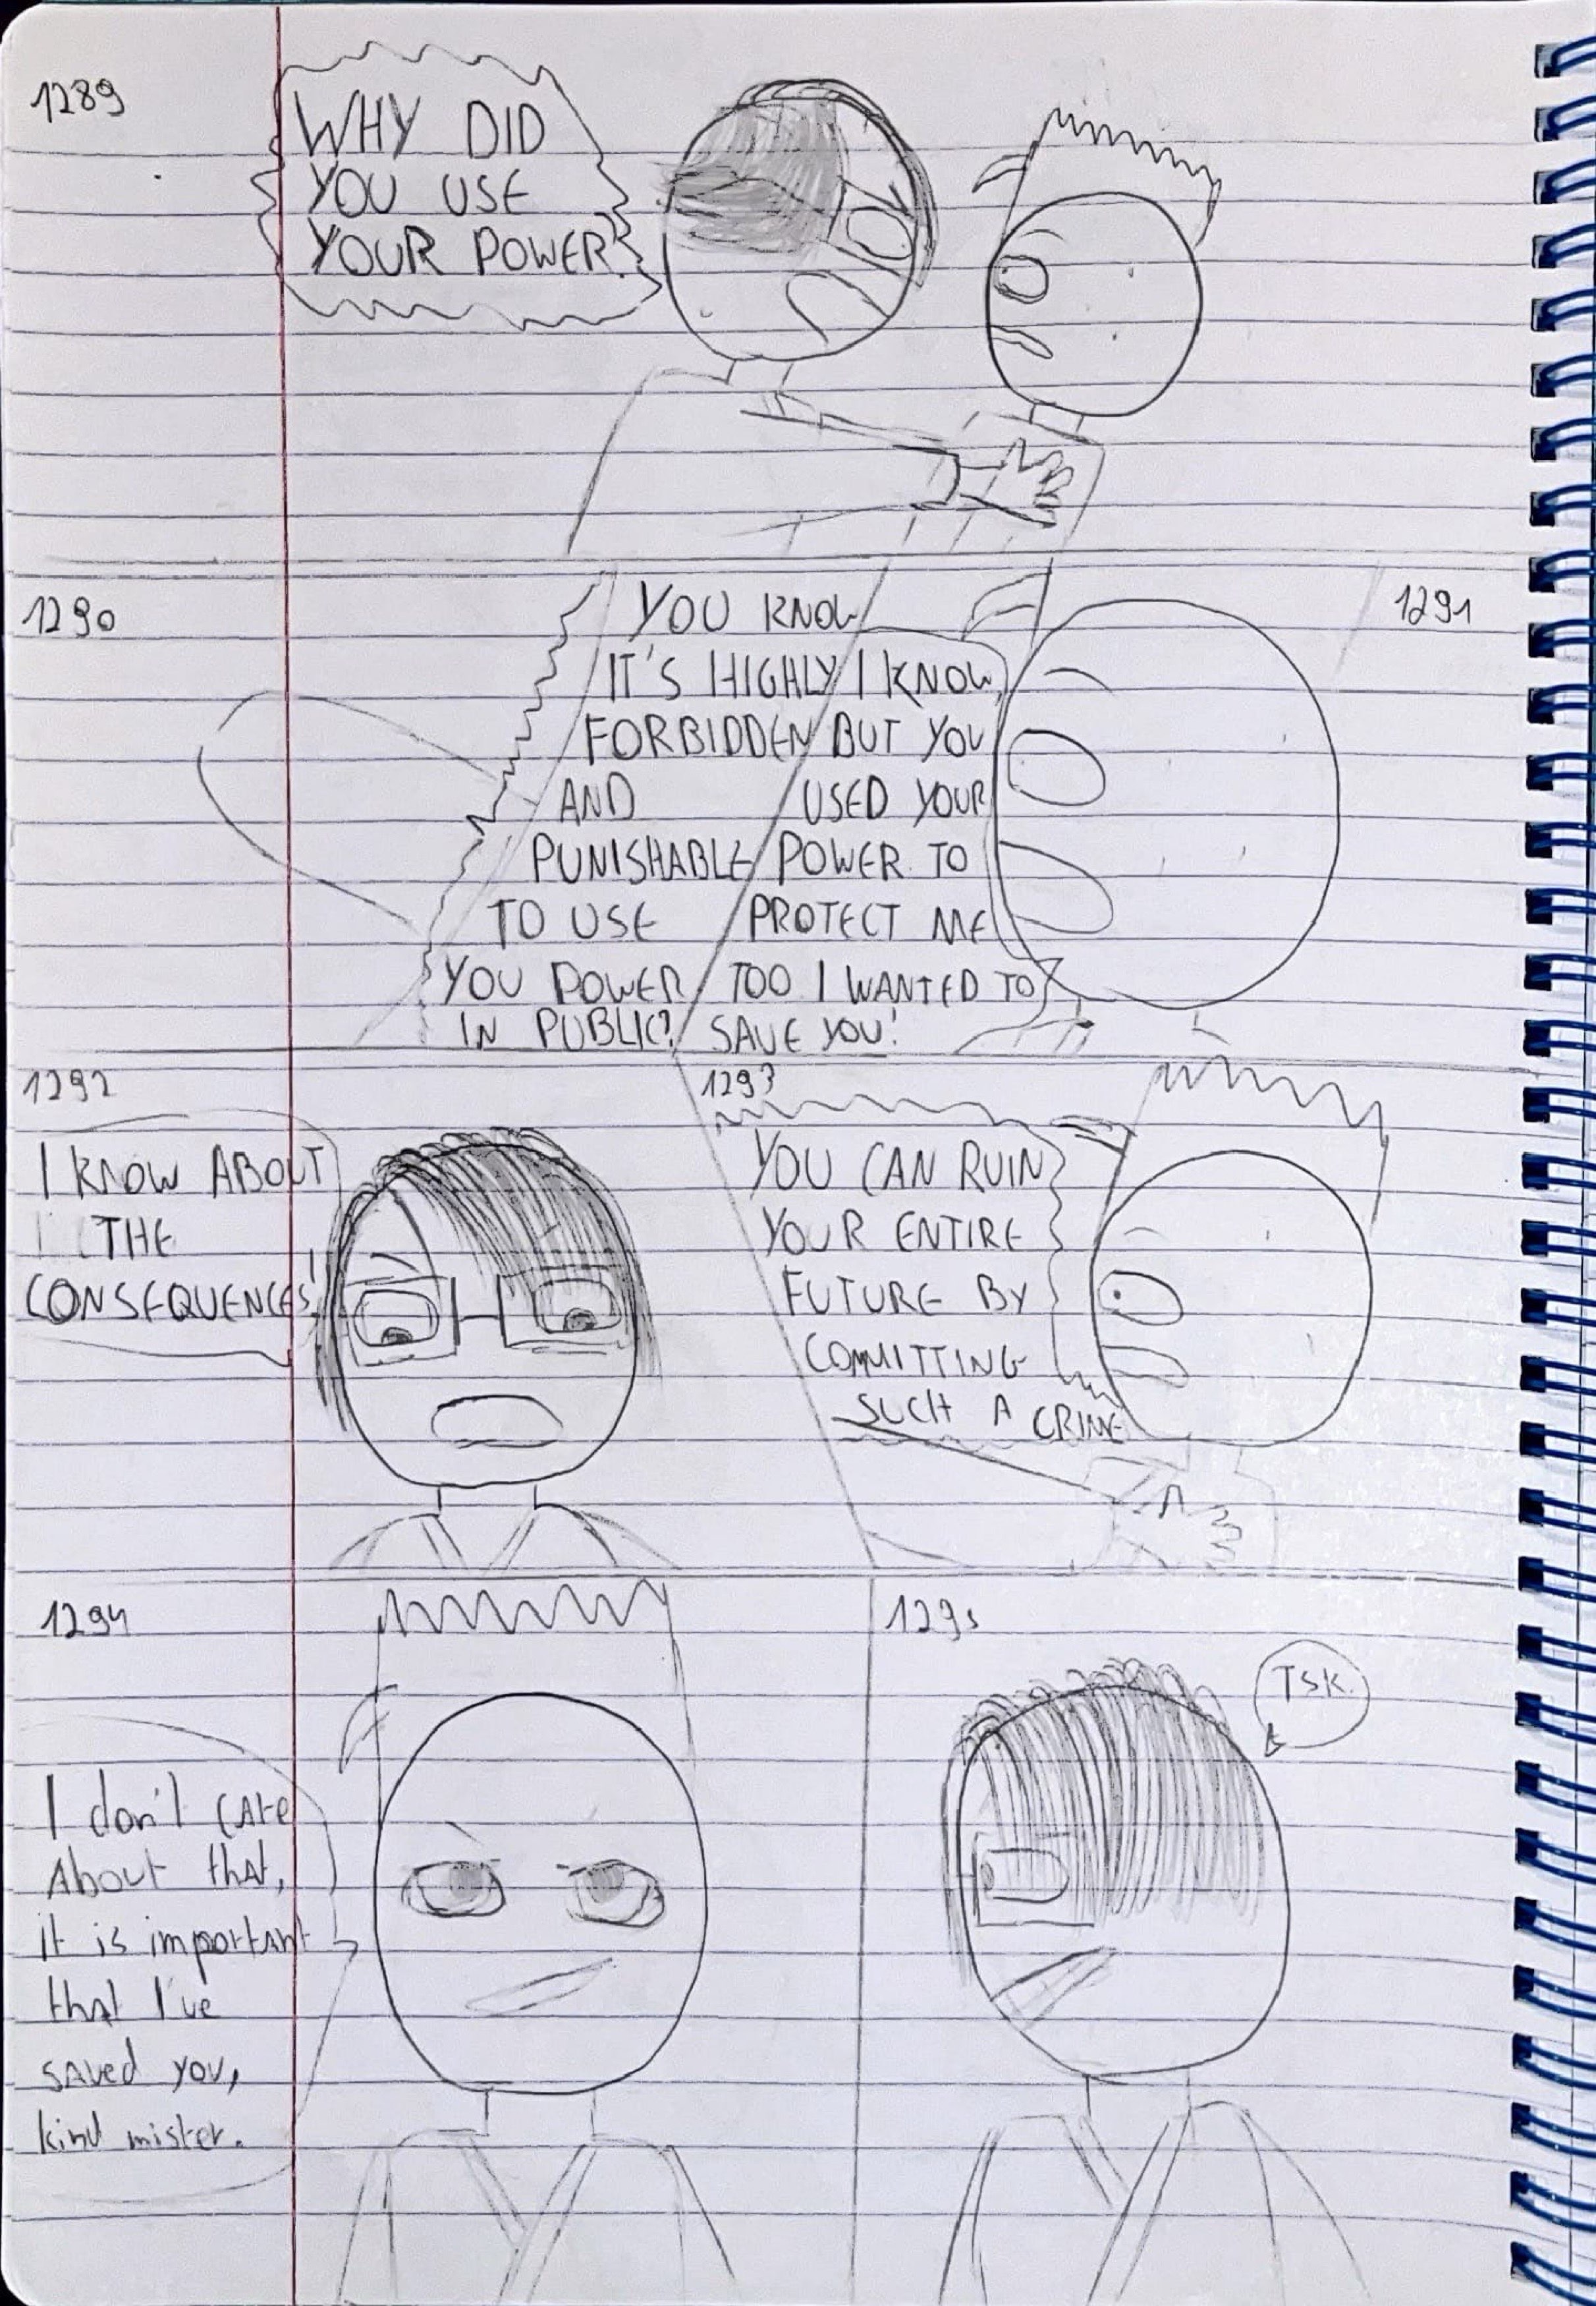 1289
WHY DID
YOU USE
YOUR POWER?
1290
YOU KNOW
IT'S HIGHLY
FORBIDDEN
AND
PUNISHABLE
TO USE
YOU POWER
IN PUBLIC?
1291
I KNOW,
BUT YOU
USED YOUR
POWER TO
PROTECT ME
TOO I WANTED TO
SAVE YOU!
1292
I KNOW ABOUT
THE
CONSEQUENCES!
1293
YOU CAN RUIN
YOUR ENTIRE
FUTURE BY
COMMITTING
SUCH A CRIME
1294
I don't care
About that,
it is important
that I've
saved you,
kind mister.
1295
TSK.